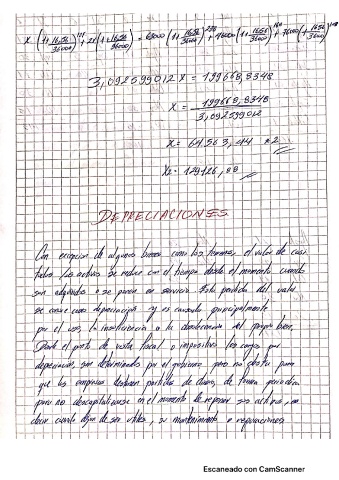 3,092599012 X = 199668,8348
X = 199668,8348
3,092599012
X = 64563,44 × 2
X2 = 129126,88
DEPRECIACIONES
Con excepcion de algunos bienes como los terrenos, el valor de casi
todos los activos se reduce con el tiempo desde el momento cuando
son adquiridos o se ponen en servicio. Esta perdida del valor
se conoce como depreciacion y es causada principalmente
por el uso, la insuficiencia o la obsolescencia del propio bien.
Desde el punto de vista fiscal o impositivo los cargos por
depreciacion, son determinados por el gobierno, pero no obsta para
que las empresas destinen partidas de dinero, de forma periodica
para no descapitalizarse en el momento de reponer sus activos, es
decir cuando dejan de ser utiles, su mantenimiento o reparaciones
Escaneado con CamScanner